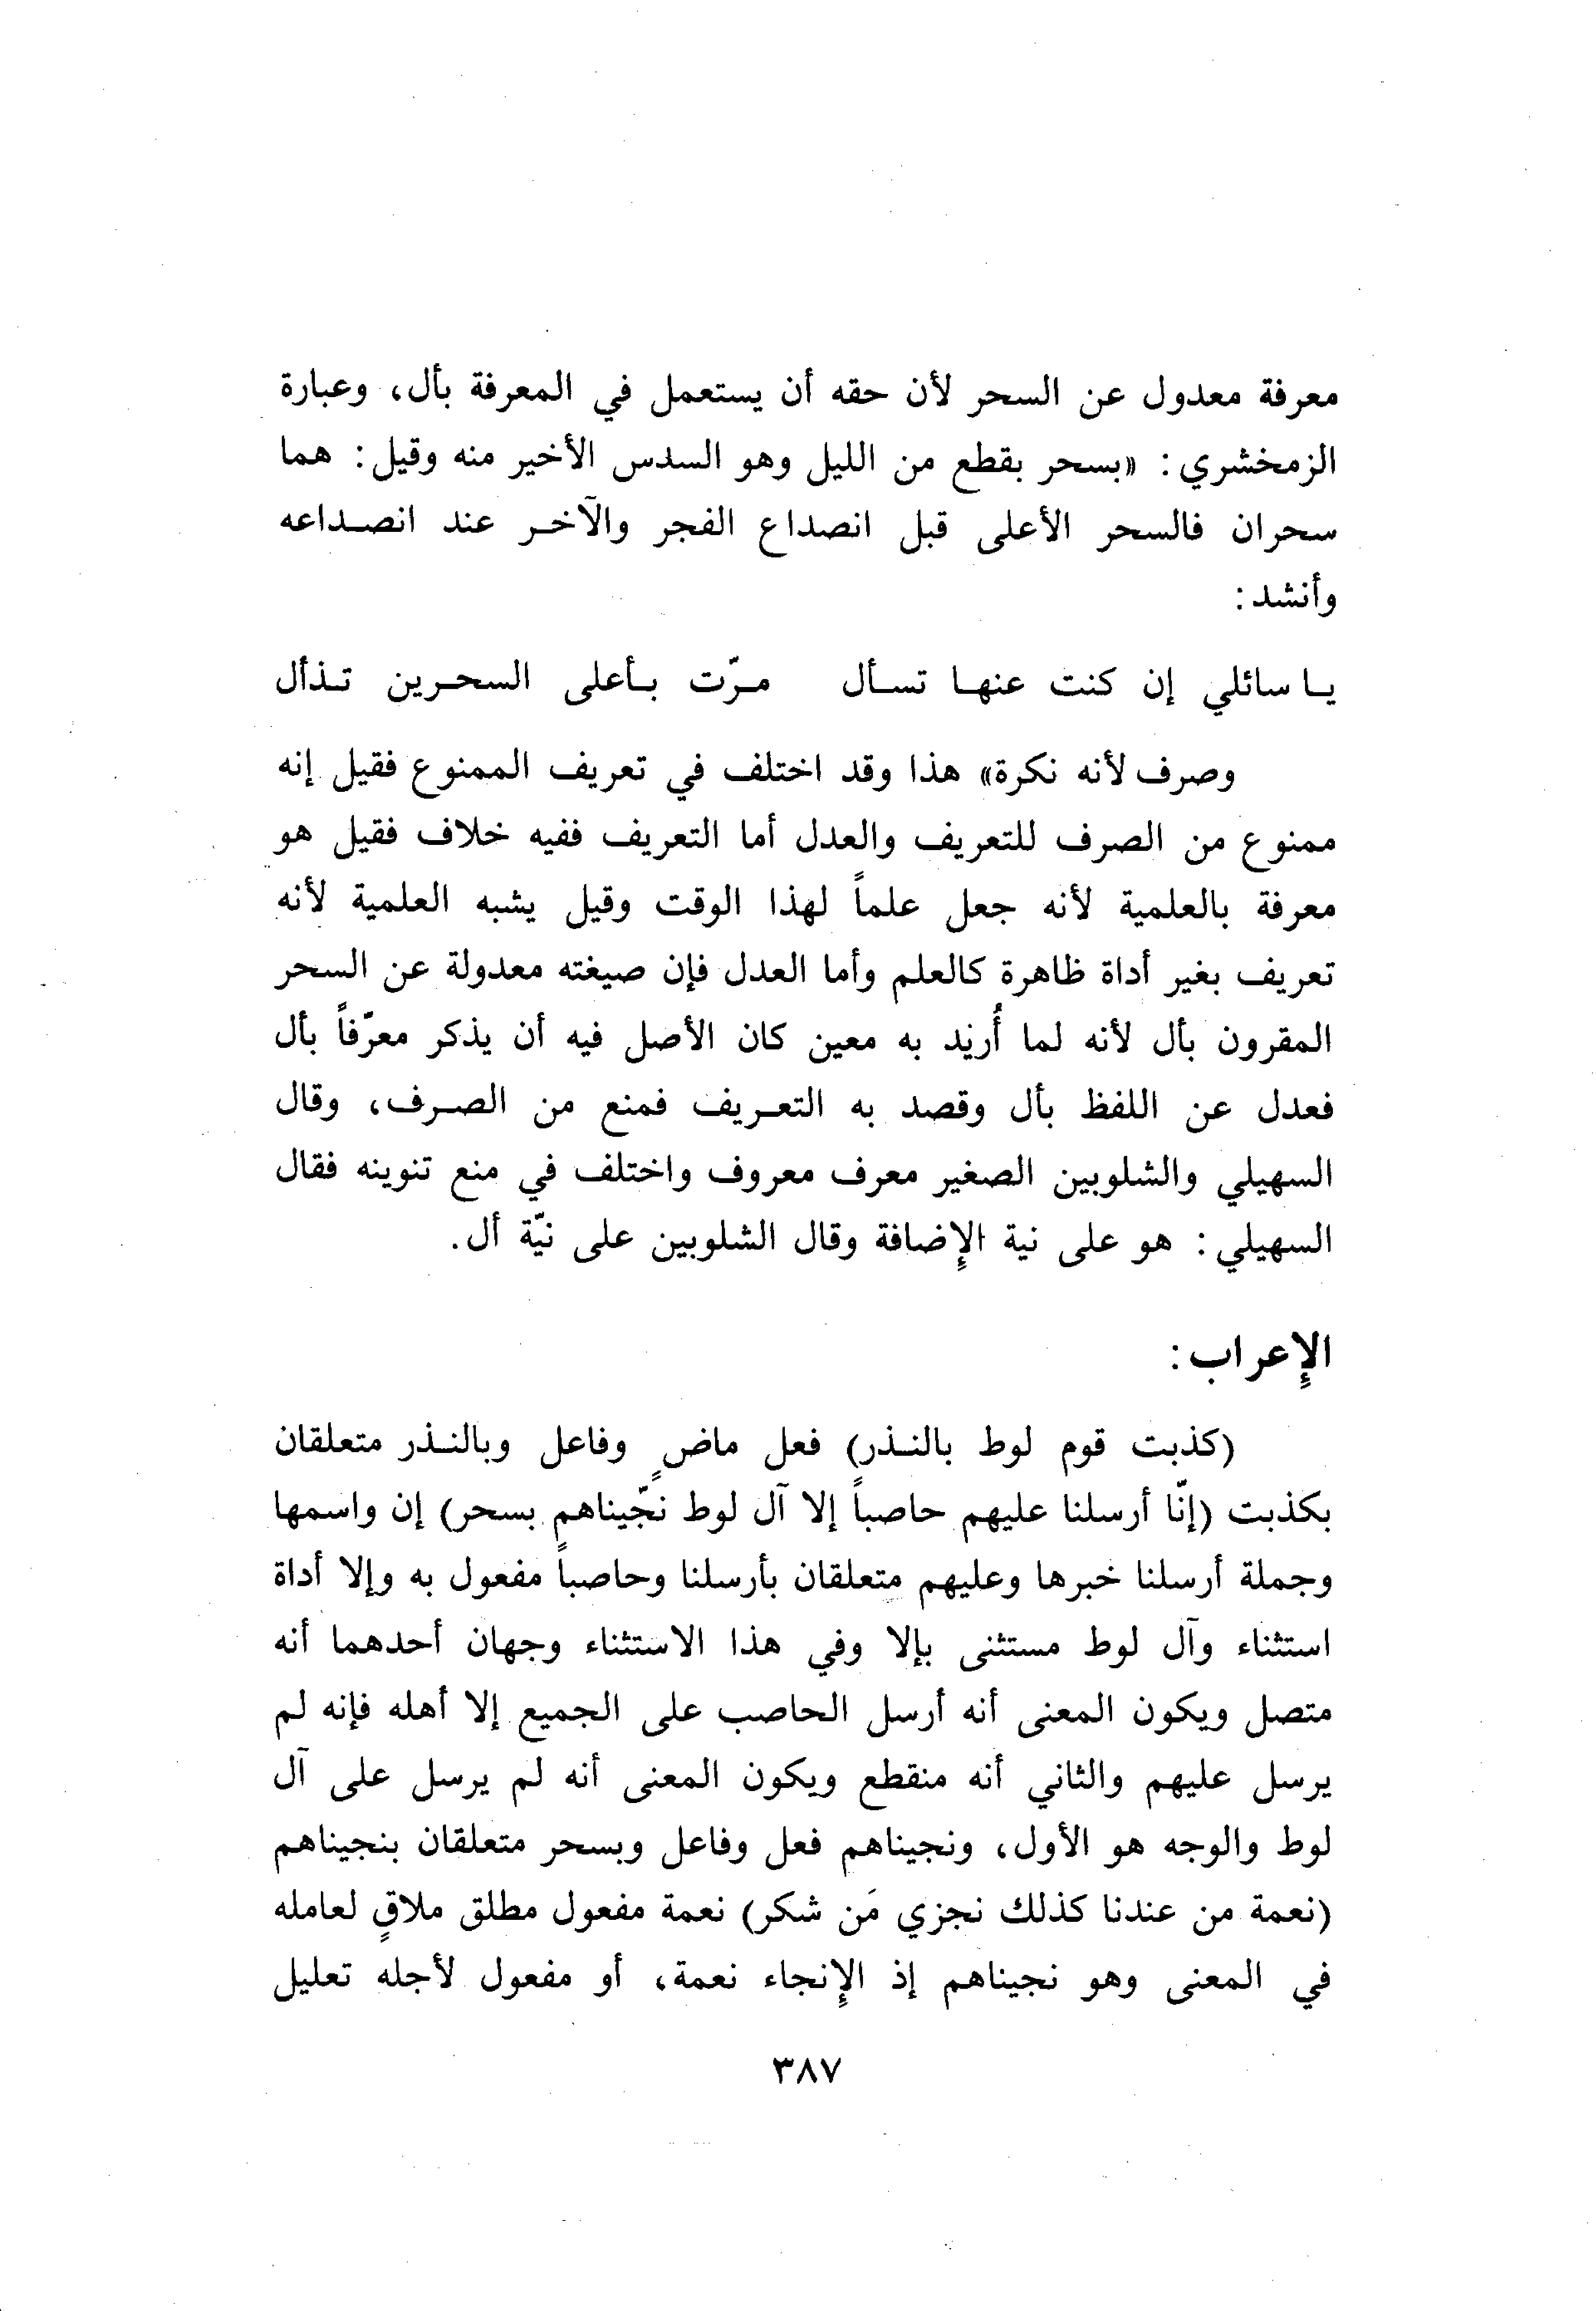 معرفة معدول عن السحر لأن حقه أن يستعمل في المعرفة بأل، وعبارة
الزمخشري: «بسحر بقطع من الليل وهو السدس الأخير منه وقيل: هما
سحران فالسحر الأعلى قبل انصداع الفجر والآخر عند انصداعه
وأنشد:
يا سائلي إن كنت عنها تسأل مرّت بأعلى السحرين تذأل
وصرف لأنه نكرة» هذا وقد اختلف في تعريف الممنوع فقيل إنه
ممنوع من الصرف للتعريف والعدل أما التعريف ففيه خلاف فقيل هو
معرفة بالعلمية لأنه جعل علماً لهذا الوقت وقيل يشبه العلمية لأنه
تعريف بغير أداة ظاهرة كالعلم وأما العدل فإن صيغته معدولة عن السحر
المقرون بأل لأنه لما أُريد به معين كان الأصل فيه أن يذكر معرّفاً بأل
فعدل عن اللفظ بأل وقصد به التعريف فمنع من الصرف، وقال
السهيلي والشلوبين الصغير معرف معروف واختلف في منع تنوينه فقال
السهيلي: هو على نية الإضافة وقال الشلوبين على نيّة أل.
الإعراب:
(كذبت قوم لوط بالنذر) فعل ماضٍ وفاعل وبالنذر متعلقان
بكذبت (إنّا أرسلنا عليهم حاصباً إلا آل لوط نجّيناهم بسحر) إن واسمها
وجملة أرسلنا خبرها وعليهم متعلقان بأرسلنا وحاصباً مفعول به وإلا أداة
استثناء وآل لوط مستثنى بإلا وفي هذا الاستثناء وجهان أحدهما أنه
متصل ويكون المعنى أنه أرسل الحاصب على الجميع إلا أهله فإنه لم
يرسل عليهم والثاني أنه منقطع ويكون المعنى أنه لم يرسل على آل
لوط والوجه هو الأول، ونجيناهم فعل وفاعل وبسحر متعلقان بنجيناهم
(نعمة من عندنا كذلك نجزي مَن شكر) نعمة مفعول مطلق ملاقٍ لعامله
في المعنى وهو نجيناهم إذ الإنجاء نعمة، أو مفعول لأجله تعليل
٣٨٧